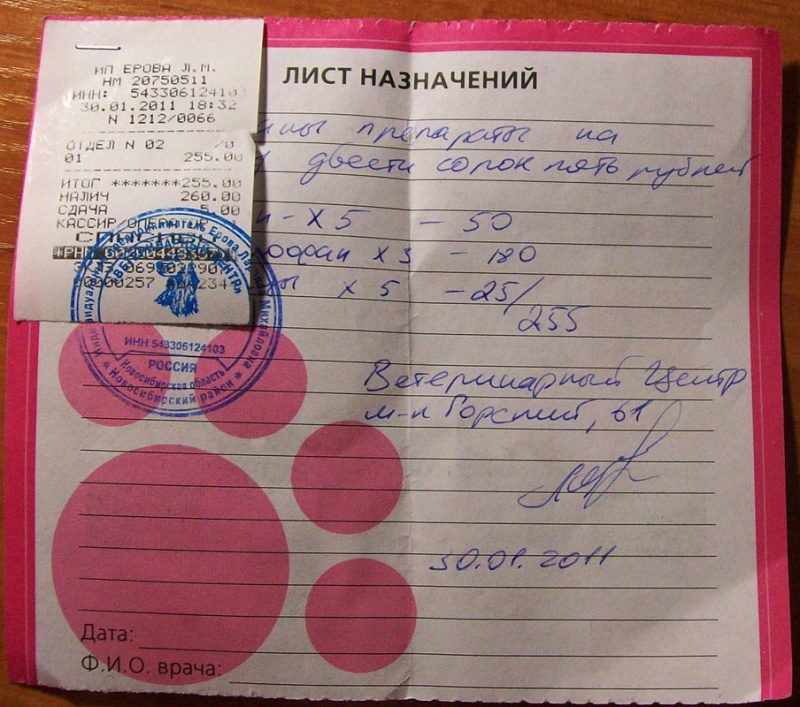 ИП ЕРОВА Л.М.
НМ 20750511
ИНН: 543306124103
30.01.2011 18:32
N 1212/0066
ОТДЕЛ N 02
01 255.00
ИТОГ *******255.00
НАЛИЧ 260.00
СДАЧА 5.00
КАССИР/ОПЕРАТОР
ЛИСТ НАЗНАЧЕНИЙ
препараты на
двести сорок пять рублей
х 5 – 50
х 3 – 180
х 5 – 25/
255
Ветеринарный Центр
м-н Горский, 61
30.01.2011
Индивидуальный предприниматель Ерова Лариса Михайловна
ИНН 543306124103
РОССИЯ
Новосибирская область
* Новосибирский район *
Дата:
Ф.И.О. врача: